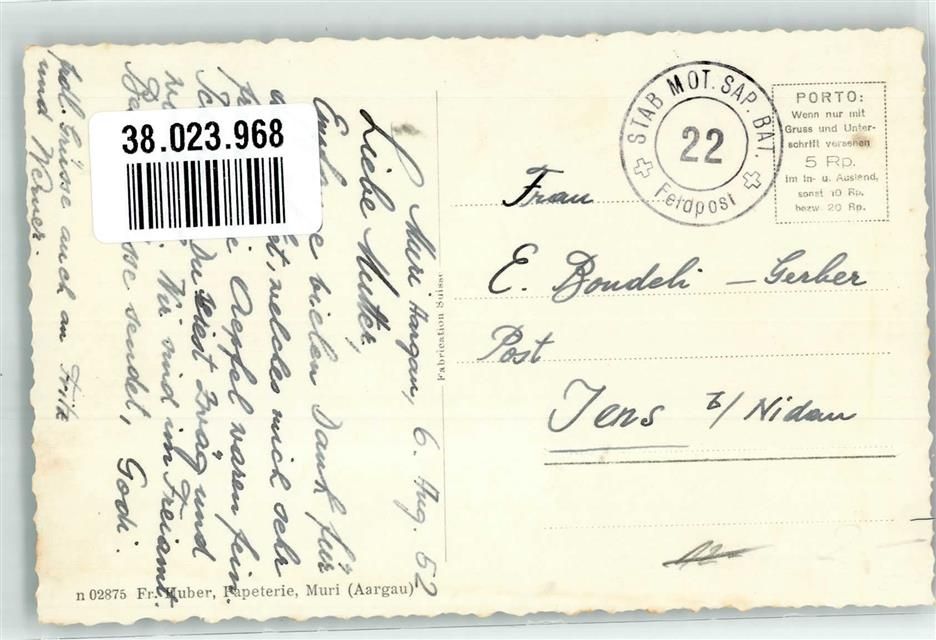 38.023.968
Muri Aargau, 6. Aug. 52
Liebe Mutter,
vielen Dank für
welches mich sehr
Aepfel waren fein.
Du und
Wir sind im Freiamt.
sendet, Godi.
frdl. Grüsse auch an Fritz
und Werner.
Fabrication Suisse
STAB MOT. SAP. BAT.
22
Feldpost
PORTO:
Wenn nur mit
Gruss und Unter-
schrift versehen
5 Rp.
im In- u. Ausland,
sonst 10 Rp.
bezw. 20 Rp.
Frau
E. Bondeli - Gerber
Post
Jens b/ Nidau
12
n 02875 Fr. Huber, Papeterie, Muri (Aargau)